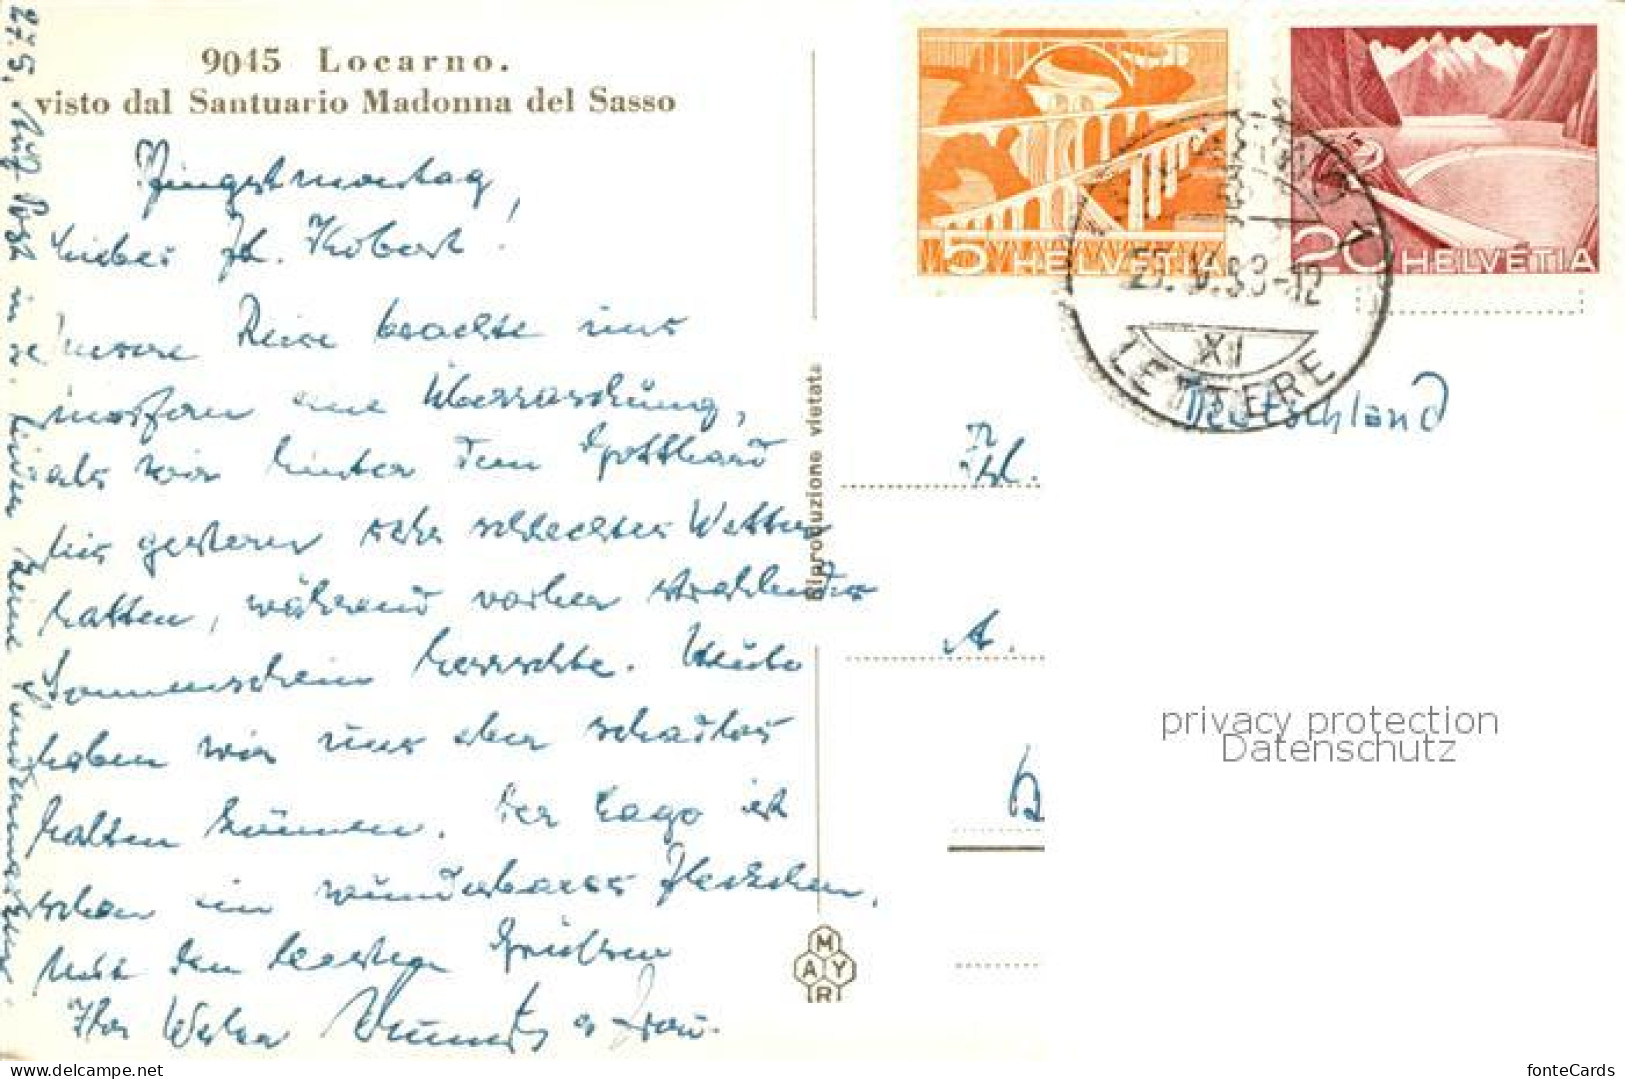 9045 Locarno.
visto dal Santuario Madonna del Sasso
Pfingstmontag,
Liebes Frl. Kobert!
Unsere Reise brachte uns
insofern eine Überraschung,
als wir hinter dem Gotthard
bis gestern sehr schlechtes Wetter
hatten, während vorher strahlender
Sonnenschein herrschte. Heute
haben wir uns aber schadlos
halten können. Der Lago ist
schon ein wunderbares Fleckchen.
Mit den besten Grüßen
Ihr u. Frau.
27.5. Auf Post in
keine
Riproduzione vietata
MAYR
5 HELVETIA
20 HELVETIA
1
-12
XII
LETTERE
Deutschland
Frl.
A.
privacy protection
Datenschutz
fonteCards